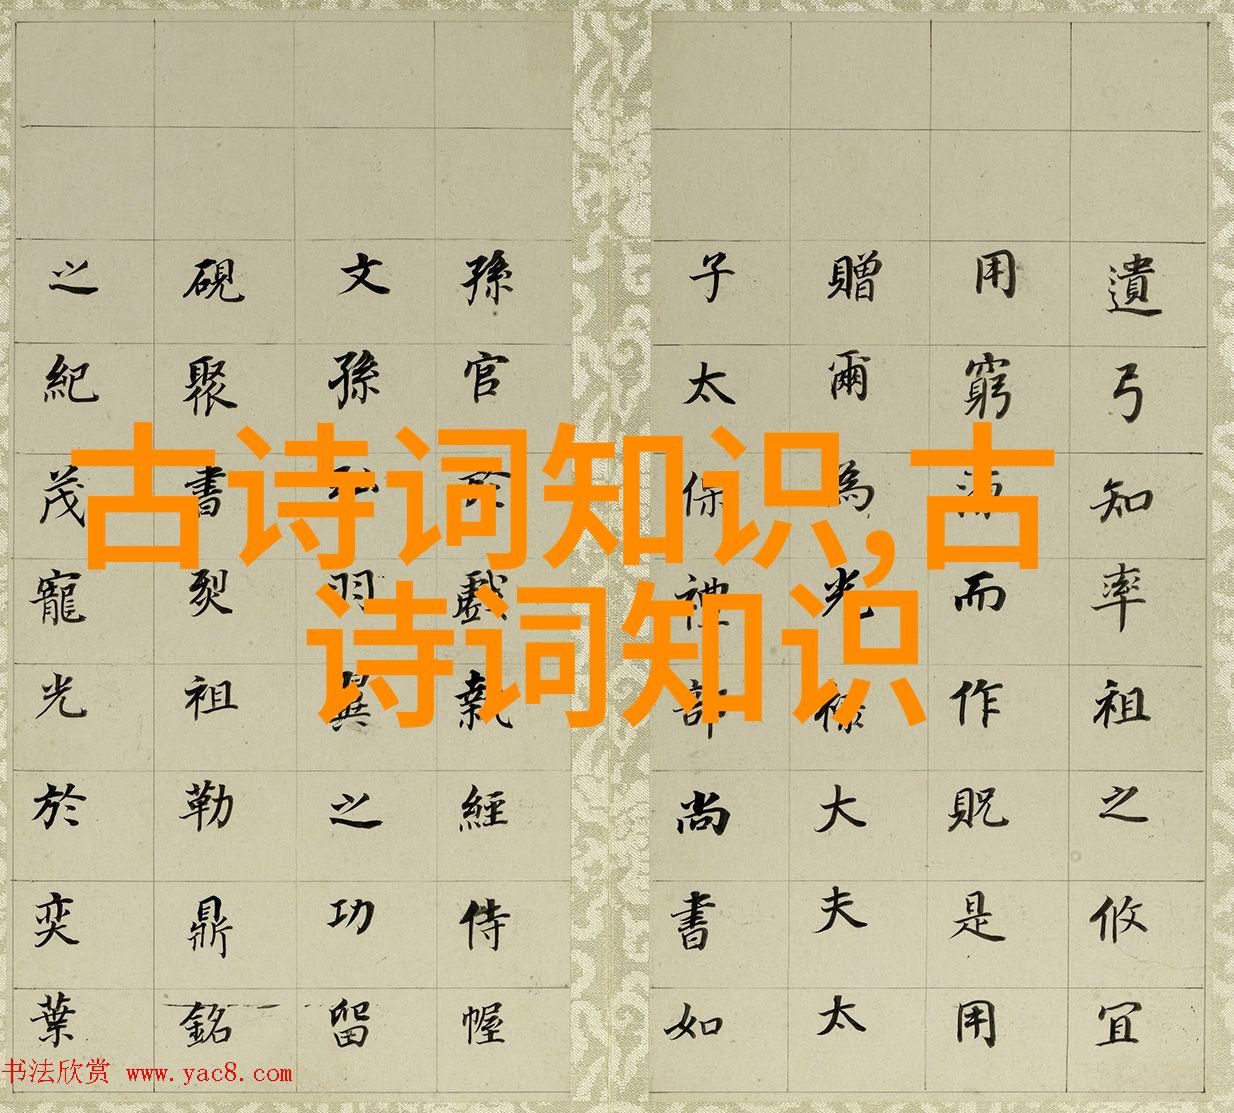 遺弓知率祖之攸宜
用窮而作貺是用
贈爾為光祿大夫太
子太保禮部尚書如
孫官於戲執經侍幄
文孫羽翼之功留
硯聚書裂祖勒鼎銘
之紀茂寵光於奕葉
古诗词知识,古
诗词知识
书法欣赏 www.yac8.com